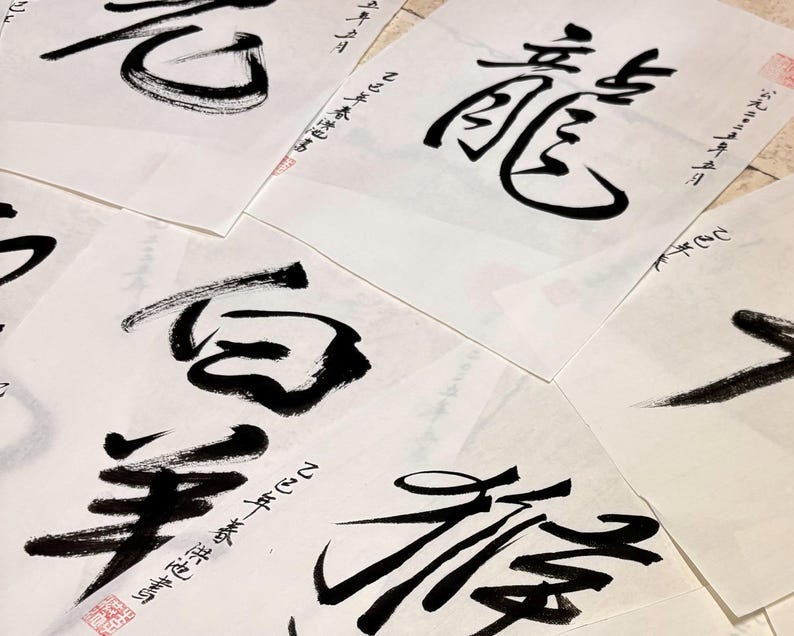 五年五月
乙巳年春洪池書
龍
公元二〇二五年五月
乙巳年
白羊
乙巳年春洪池書
猴